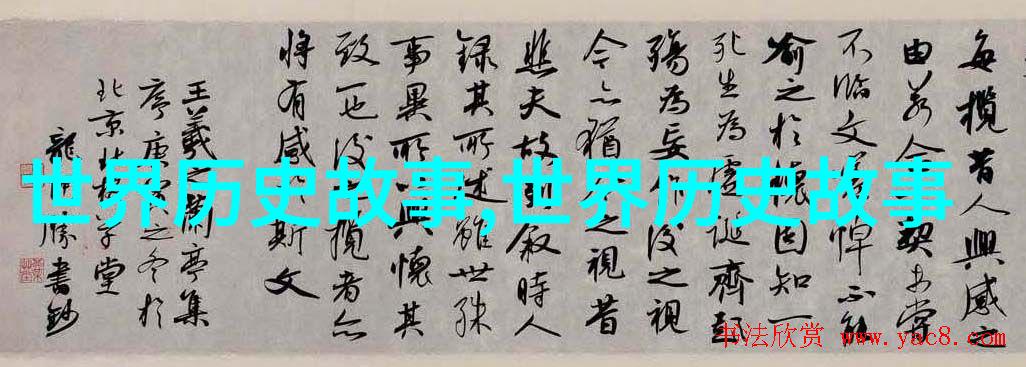 每攬昔人興感之
由若合一契未嘗
不臨文嗟悼不能
喻之於懷固知一
死生為虛誕齊彭
殤為妄作後之視
今亦猶今之視昔
悲夫故列敘時人
錄其所述雖世殊
事異所以興懷其
致一也後攬者亦
將有感於斯文
王羲之蘭亭集
序庚寅之冬於
北京子堂
龍勝書鈔
世界历史故事,世界历史故事
书法欣赏 www.yac8.com